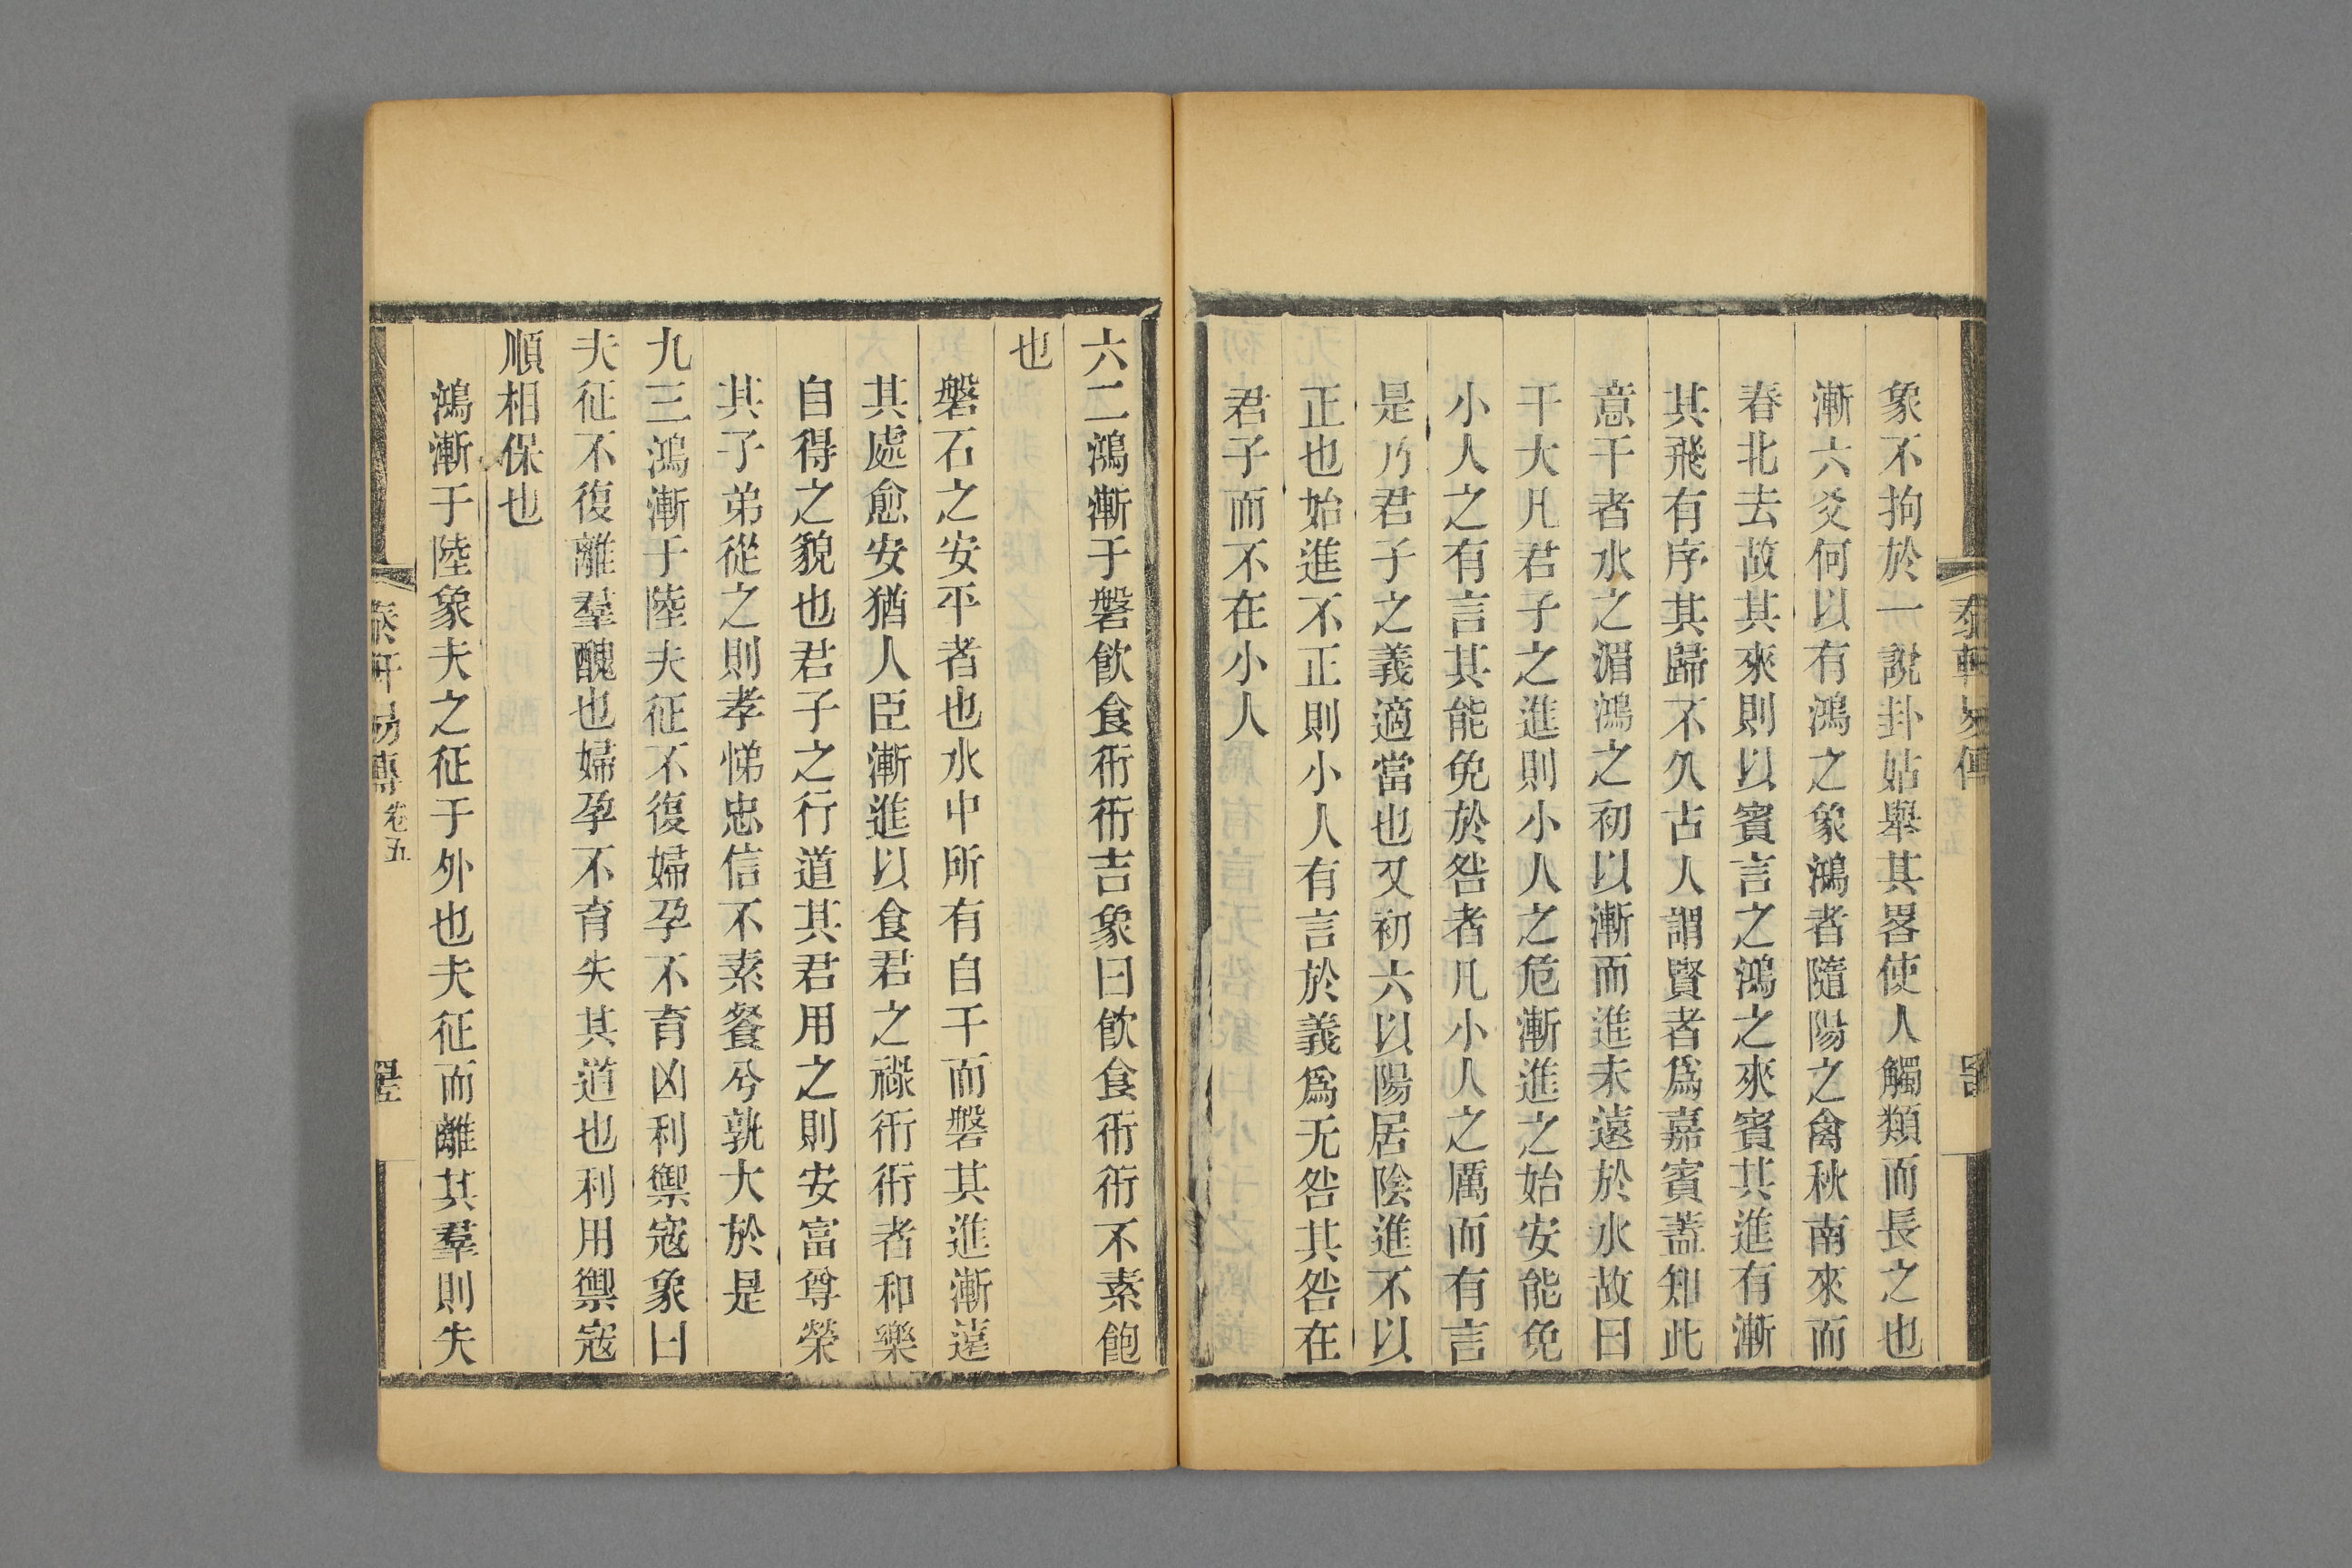 象不拘於一說卦姑舉其畧使人觸類而長之也
漸六爻何以有鴻之象鴻者隨陽之禽秋南來而
春北去故其來則以賓言之鴻之來賓其進有漸
其飛有序其歸不久古人謂賢者爲嘉賓蓋知此
意干者水之湄鴻之初以漸而進未遠於水故曰
干大凡君子之進則小人之危漸進之始安能免
小人之有言其能免於咎者凡小人之厲而有言
是乃君子之義適當也又初六以陽居陰進不以
正也始進不正則小人有言於義爲无咎其咎在
君子而不在小人
六二鴻漸于磐飮食衎衎吉象曰飮食衎衎不素飽
也
磐石之安平者也水中所有自干而磐其進漸遠
其處愈安猶人臣漸進以食君之祿衎衎者和樂
自得之貌也君子之行道其君用之則安富尊榮
其子弟從之則孝悌忠信不素餐兮孰大於是
九三鴻漸于陸夫征不復婦孕不育凶利禦寇象曰
夫征不復離羣醜也婦孕不育失其道也利用禦寇
順相保也
鴻漸于陸象夫之征于外也夫征而離其羣則失
泰軒易傳 卷五